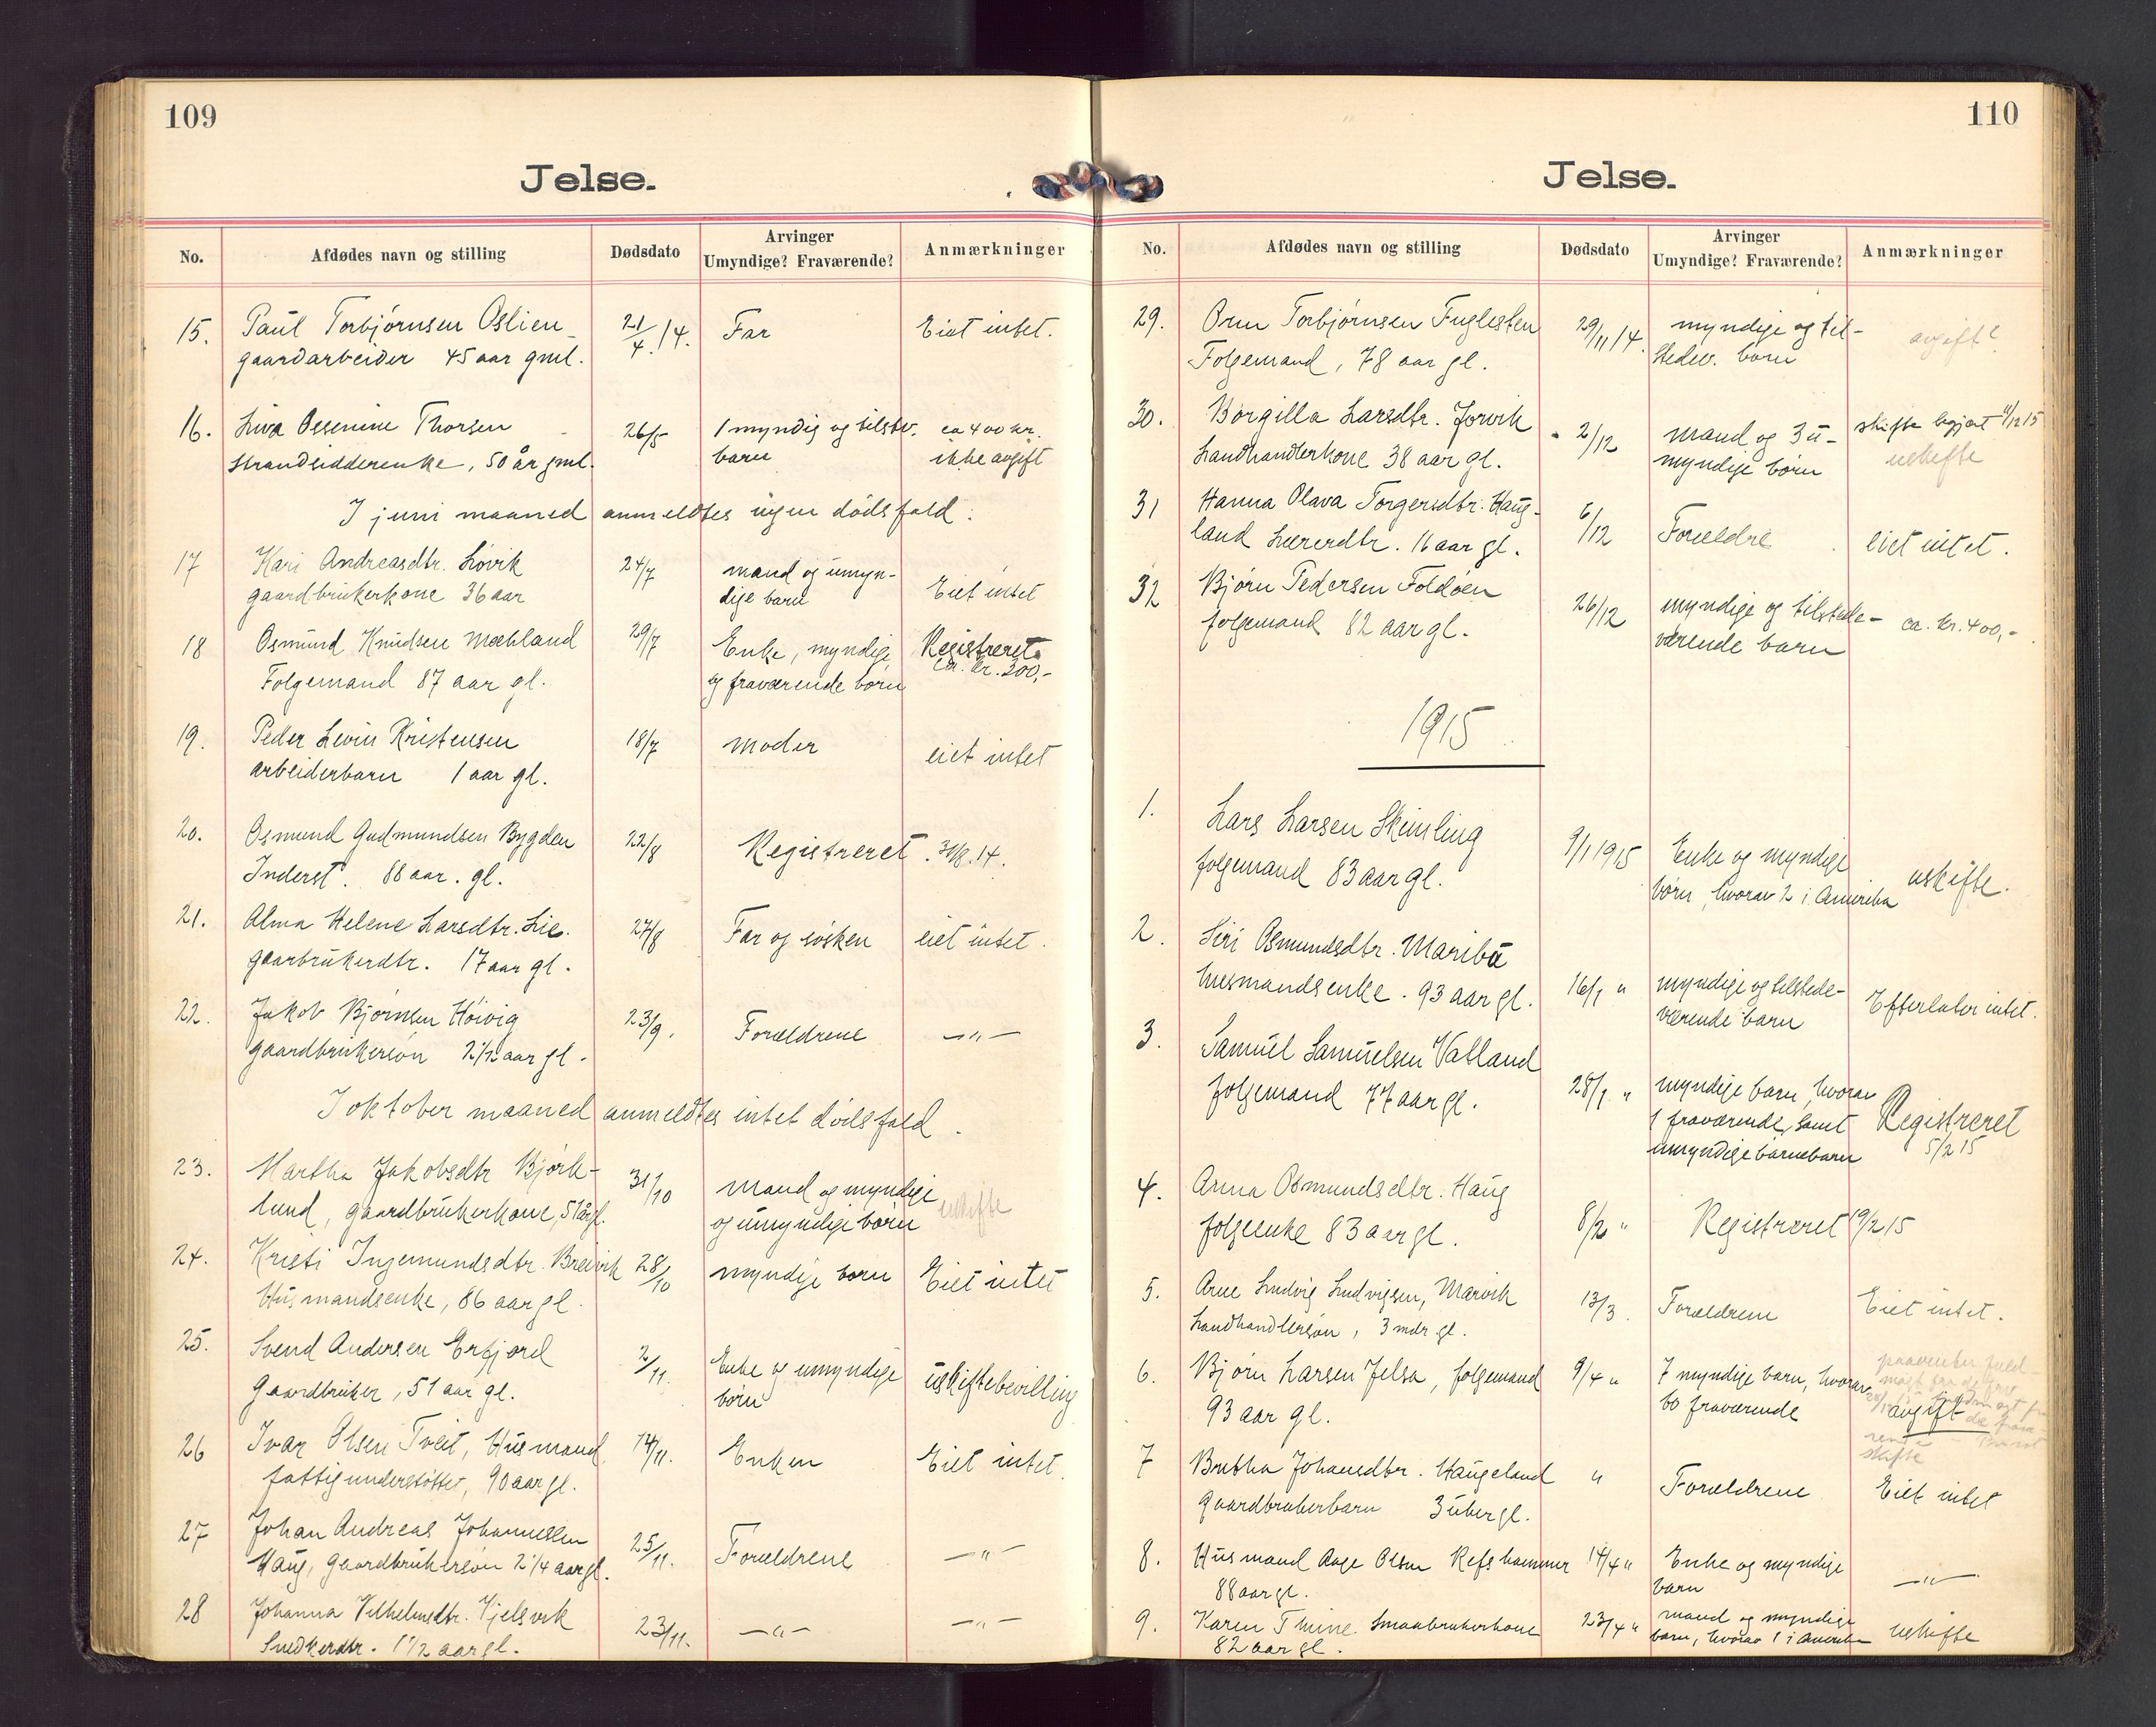 109
Jelse.
No. Afdødes navn og stilling Dødsdato Arvinger Umyndige? Fraværende? Anmærkninger
15. Paul Torbjørnsen Oslien 21/4.14. Far Eiet intet.
gaardarbeider 45 aar gml.
16. Liva Ossenine Thorsen 26/5 1 myndig og tilstev. ca 400 kr.
strandsidderenke, 50 år gml. barn ikke avgift
I juni maaned anmeldtes ingen dødsfald.
17 Kari Andreasdtr. Løvik 24/7 mand og umyn-
gaardbrukerkone 36 aar dige barn Eiet intet
18 Osmund Knudsen Mæhland 29/7 Enke, myndige Registreret
Folgemand 87 aar gl. og fraværende børn ca. kr. 200,-
19. Peder Levin Kristensen 18/7 moder eiet intet
arbeiderbarn 1 aar gl.
20. Osmund Gudmundsen Bygden 22/8 Registreret. 31/8.14.
Inderst. 88 aar. gl.
21. Alma Helene Larsdtr. Lie. 27/8 Far og søsken eiet intet.
gaarbrukerdtr. 17 aar gl.
22. Jakob Bjørnsen Høivig 23/9. Forældrene —"—
gaardbrukersøn 2 1/2 aar gl.
I oktober maaned anmeldtes intet dødsfald.
23. Martha Jakobsdtr Bjørk- 31/10 mand og myndige uskifte
lund, gaardbrukerkone, 51 år gl. og umyndige børn
24. Kristi Ingemundsdtr. Breivik 28/10 myndige børn Eiet intet
Husmandsenke, 86 aar gl.
25. Svend Andersen Erfjord 2/11. Enke og umyndige uskiftebevilling
Gaardbruker, 51 aar gl. børn
26 Ivar Olsen Tveit, Husmand, 14/11. Enken Eiet intet.
fattigunderstøttet, 90 aar gl.
27 Johan Andreas Johannessen 25/11. Forældrene —"—
Haug, Gaardbrukersøn 2 1/4 aar gl.
28 Johanna Vilhelmsdtr. Hjelsvik 23/11. —"— —"—
Snedkerdtr. 1 1/2 aar gl.
110
Jelse.
No. Afdødes navn og stilling Dødsdato Arvinger Umyndige? Fraværende? Anmærkninger
29. Orm Torbjørnsen Fuglesten 29/11 14. myndige og til- avgift?
Folgemand, 78 aar gl. stedev. børn
30. Borgilla Larsdtr. Jorvik 2/12 mand og 3 u- skifte begjært 4/12 15
Landhandlerkone 38 aar gl. myndige børn uskifte
31 Hanna Olava Torgersdtr. Haug- 6/12 Forældre eiet intet.
land Lærerdtr. 16 aar gl.
32 Bjørn Pedersen Foldøen 26/12 myndige og tilstede- ca. kr. 400,-
folgemand 82 aar gl. værende barn
1915
1. Lars Larsen Skimling 9/1 1915 Enke og myndige uskifte.
folgemand 83 aar gl. børn, hvorav 2 i Amerika
2. Siri Osmundsdtr. Maribå 16/1 " myndige og tilstede- Efterlater intet.
husmandsenke. 93 aar gl. værende barn
3. Samuel Samuelsen Vatland 28/1 " myndige barn, hvorav
folgemand 77 aar gl. 1 fraværende, samt Registreret
umyndige barnebarn 5/2 15
4. Anna Osmundsdtr. Haug 8/2 " Registreret 19/2 15
folgeenke 83 aar gl.
5. Arne Ludvig Ludvigsen, Marvik 13/3. Forældrene Eiet intet.
Landhandlersøn, 3 mdr gl.
6. Bjørn Larsen Jelsa, folgemand 9/4 " 7 myndige barn, hvorav
93 aar gl. bo fraværende avgift
skifte
7 Bertha Johansdtr. Haugeland " Forældrene Eiet intet
Gaardbrukerbarn 3 uker gl.
8. Husmand Aage Olsen Refshammer 14/4 " Enke og myndige —"—
88 aar gl. barn
9. Karen Thine. Smaabrukerkone 23/4 " mand og myndige uskifte
82 aar gl. barn, hvorav 1 i Amerika